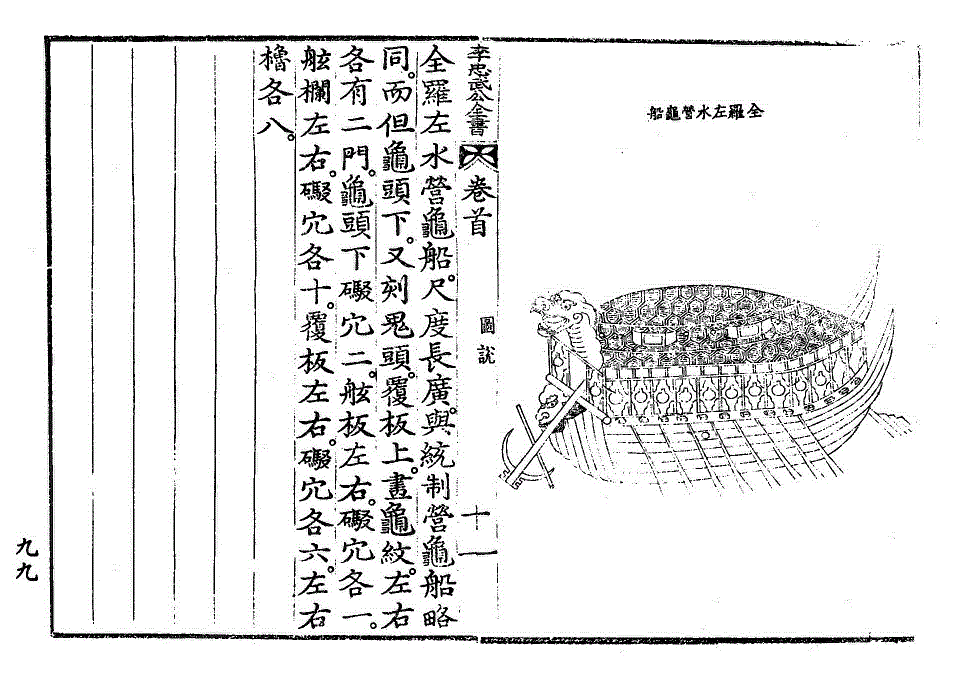 全羅左水營龜船
李忠武公全書 卷首 圖說 十一
全羅左水營龜船。尺度長廣。與統制營龜船略
同。而但龜頭下。又刻鬼頭。覆板上。畫龜紋。左右
各有二門。龜頭下礮穴二。舷板左右。礮穴各一。
舷欄左右。礮穴各十。覆板左右。礮穴各六。左右
櫓各八。
九九